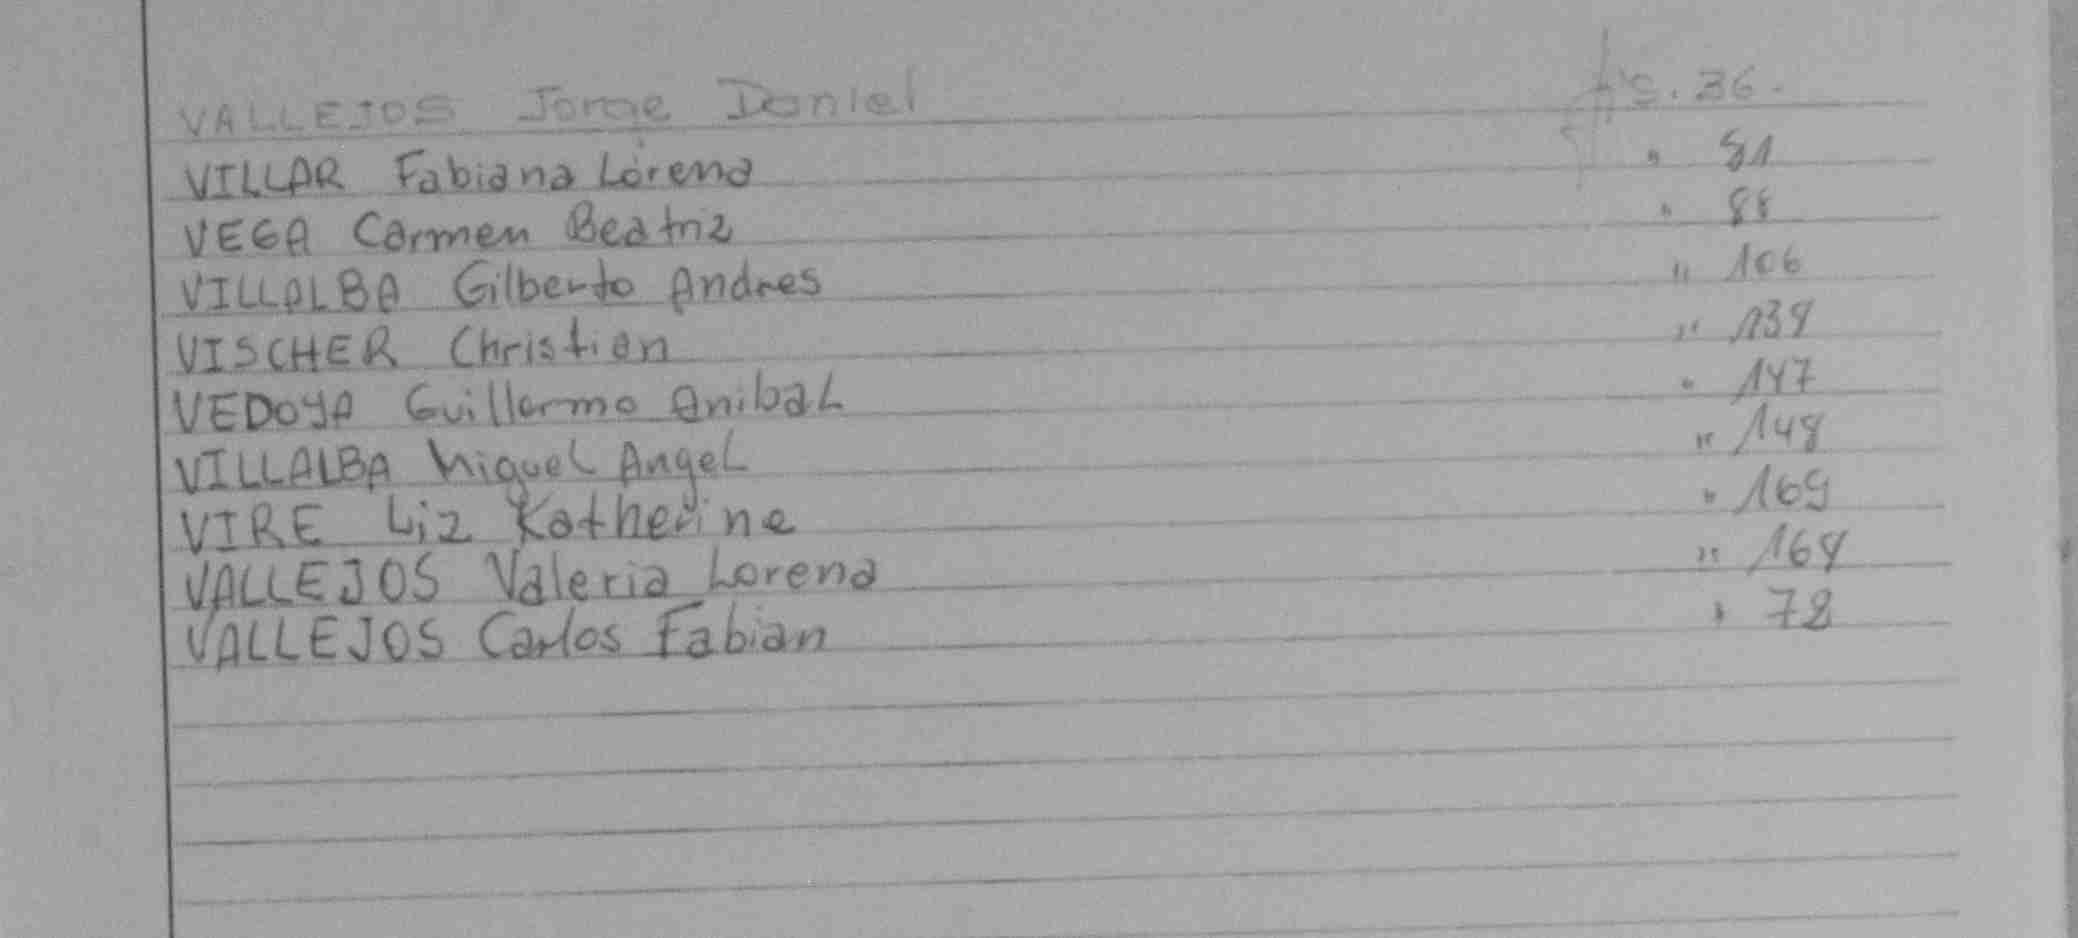 VALLEJOS Jorge Daniel fs. 36.
VILLAR Fabiana Lorena " 81
VEGA Carmen Beatriz " 88
VILLALBA Gilberto Andres " 106
VISCHER Christian "
VEDOYA Guillermo Anibal " 147
VILLALBA Miguel Angel " 148
VIRE Liz Katherine " 169
VALLEJOS Valeria Lorena "
VALLEJOS Carlos Fabian " 78